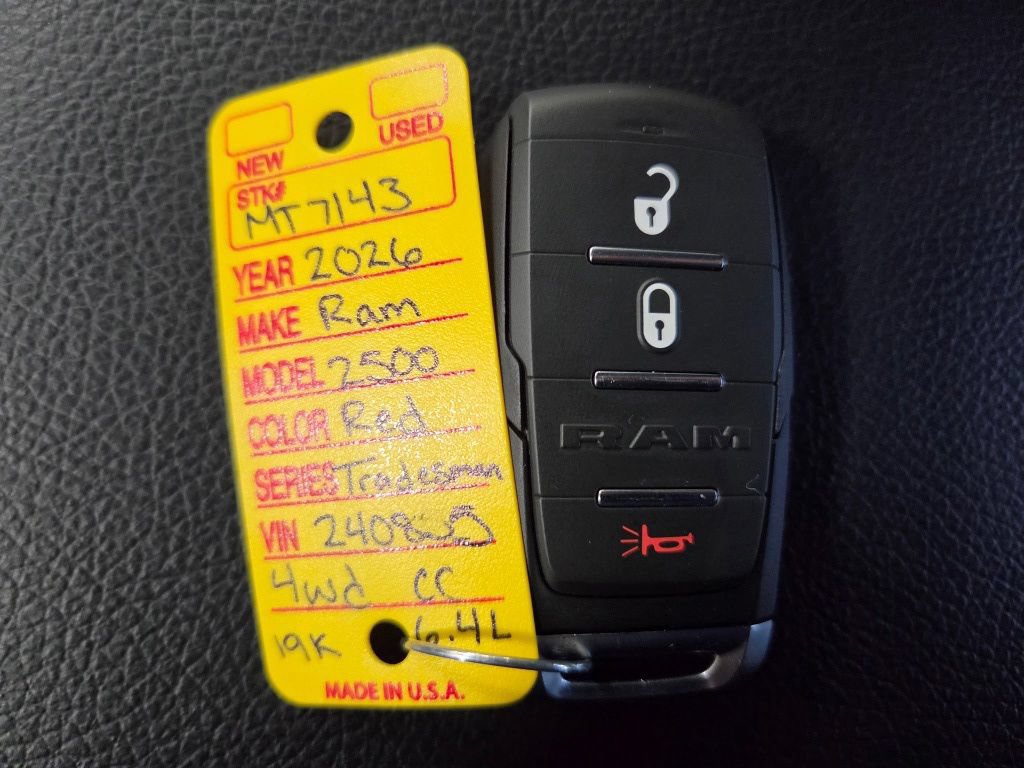 NEW USED
STK#
MT7143
YEAR 2026
MAKE Ram
MODEL 2500
COLOR Red
SERIES Tradesman
VIN
4wd CC
19K 6.4L
MADE IN U.S.A.
RAM